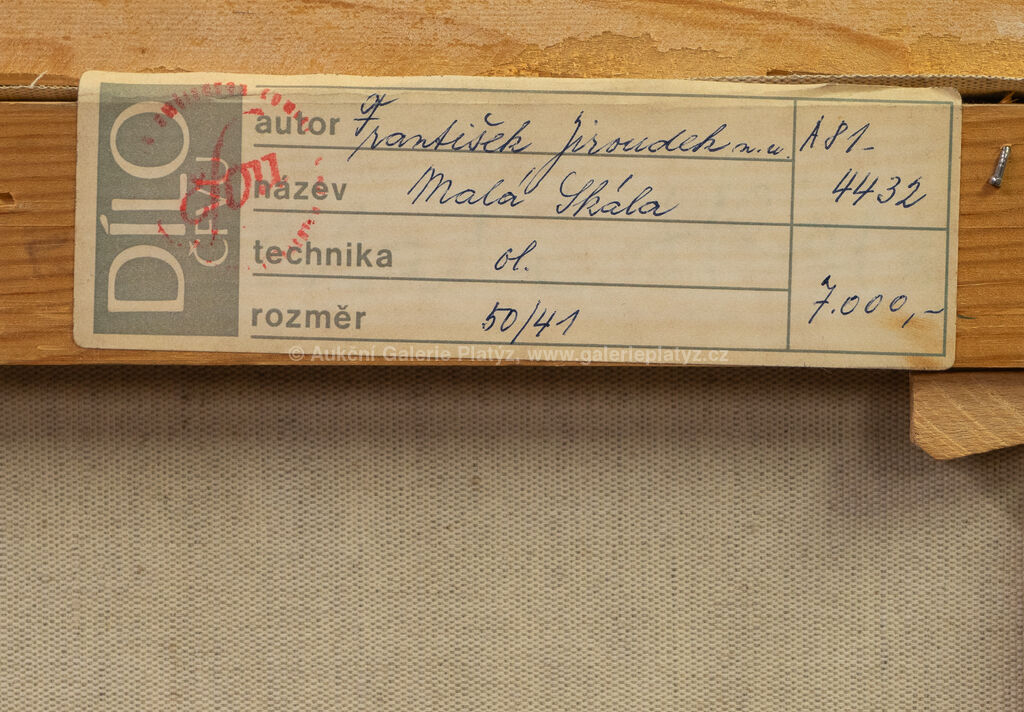 DÍLO
ČFVU
autor František Jiroudek n.u.
A81-
4432
název Malá Skála
technika ol.
rozměr 50/41
7.000,-
© Aukční Galerie Platýz, www.galerieplatyz.cz